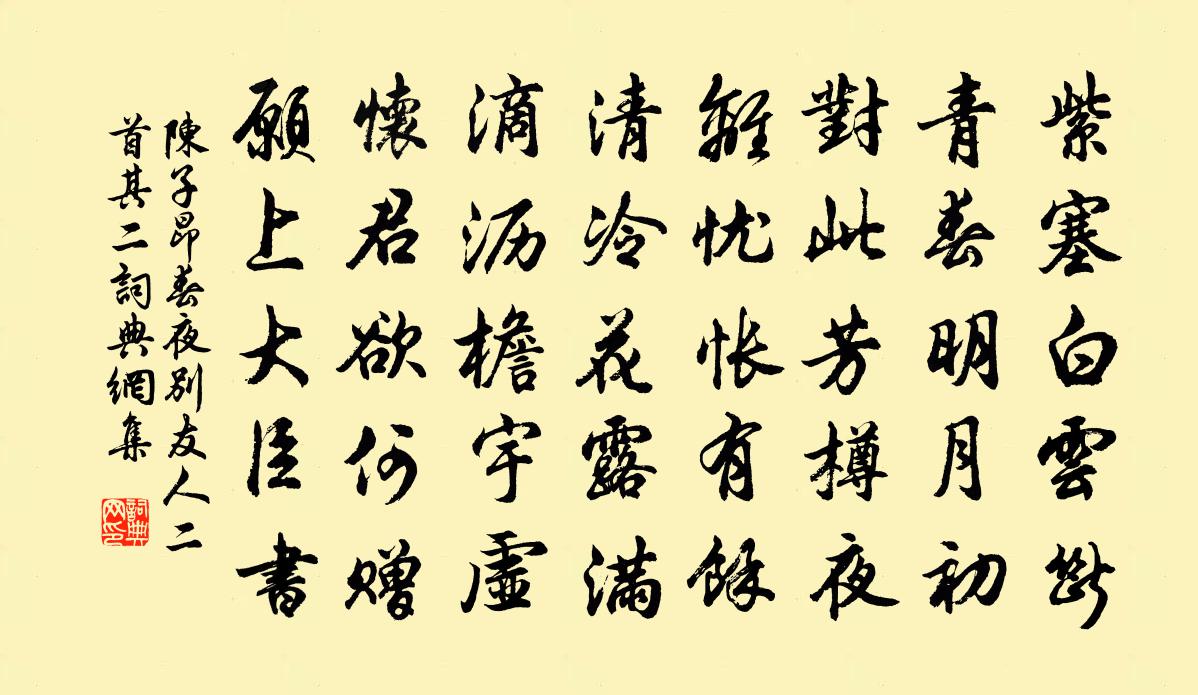 紫塞白雲斷
青春明月初
對此芳樽夜
離憂悵有餘
清冷花露滿
滴沥檐宇虛
懷君欲何贈
願上大臣書
陳子昂春夜別友人二
首其二詞典網集
詞典
网印